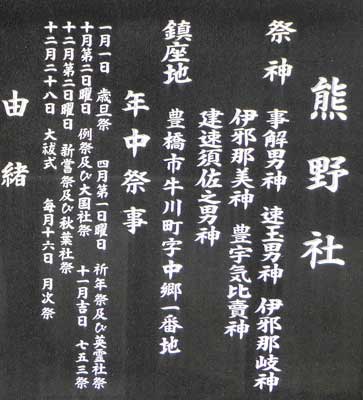 熊野社
祭神 事解男神 速玉男神 伊邪那岐神
伊邪那美神 豊宇気比賣神
建速須佐之男神
鎮座地 豊橋市牛川町字中郷一番地
年中祭事
一月一日 歳旦祭 四月第一日曜日 祈年祭及び英霊社祭
十月第二日曜日 例祭及び大国社祭 十一月吉日 七五三祭
十二月第二日曜日 新嘗祭及び秋葉社祭
十二月二十八日 大祓式 毎月十六日 月次祭
由緒